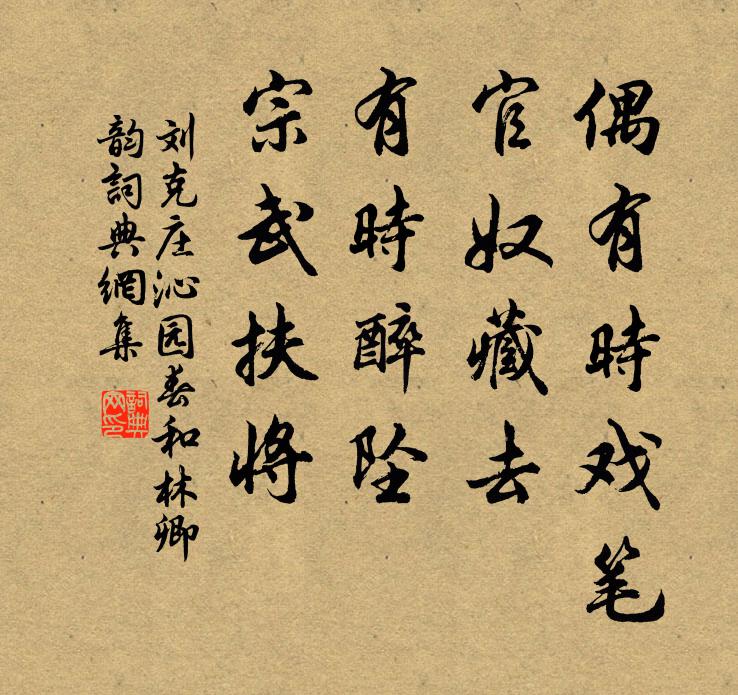 偶有時戏笔
官奴藏去
有時醉坠
宗武扶将
刘克庄沁园春和林卿
韵詞典網集
詞典
网印